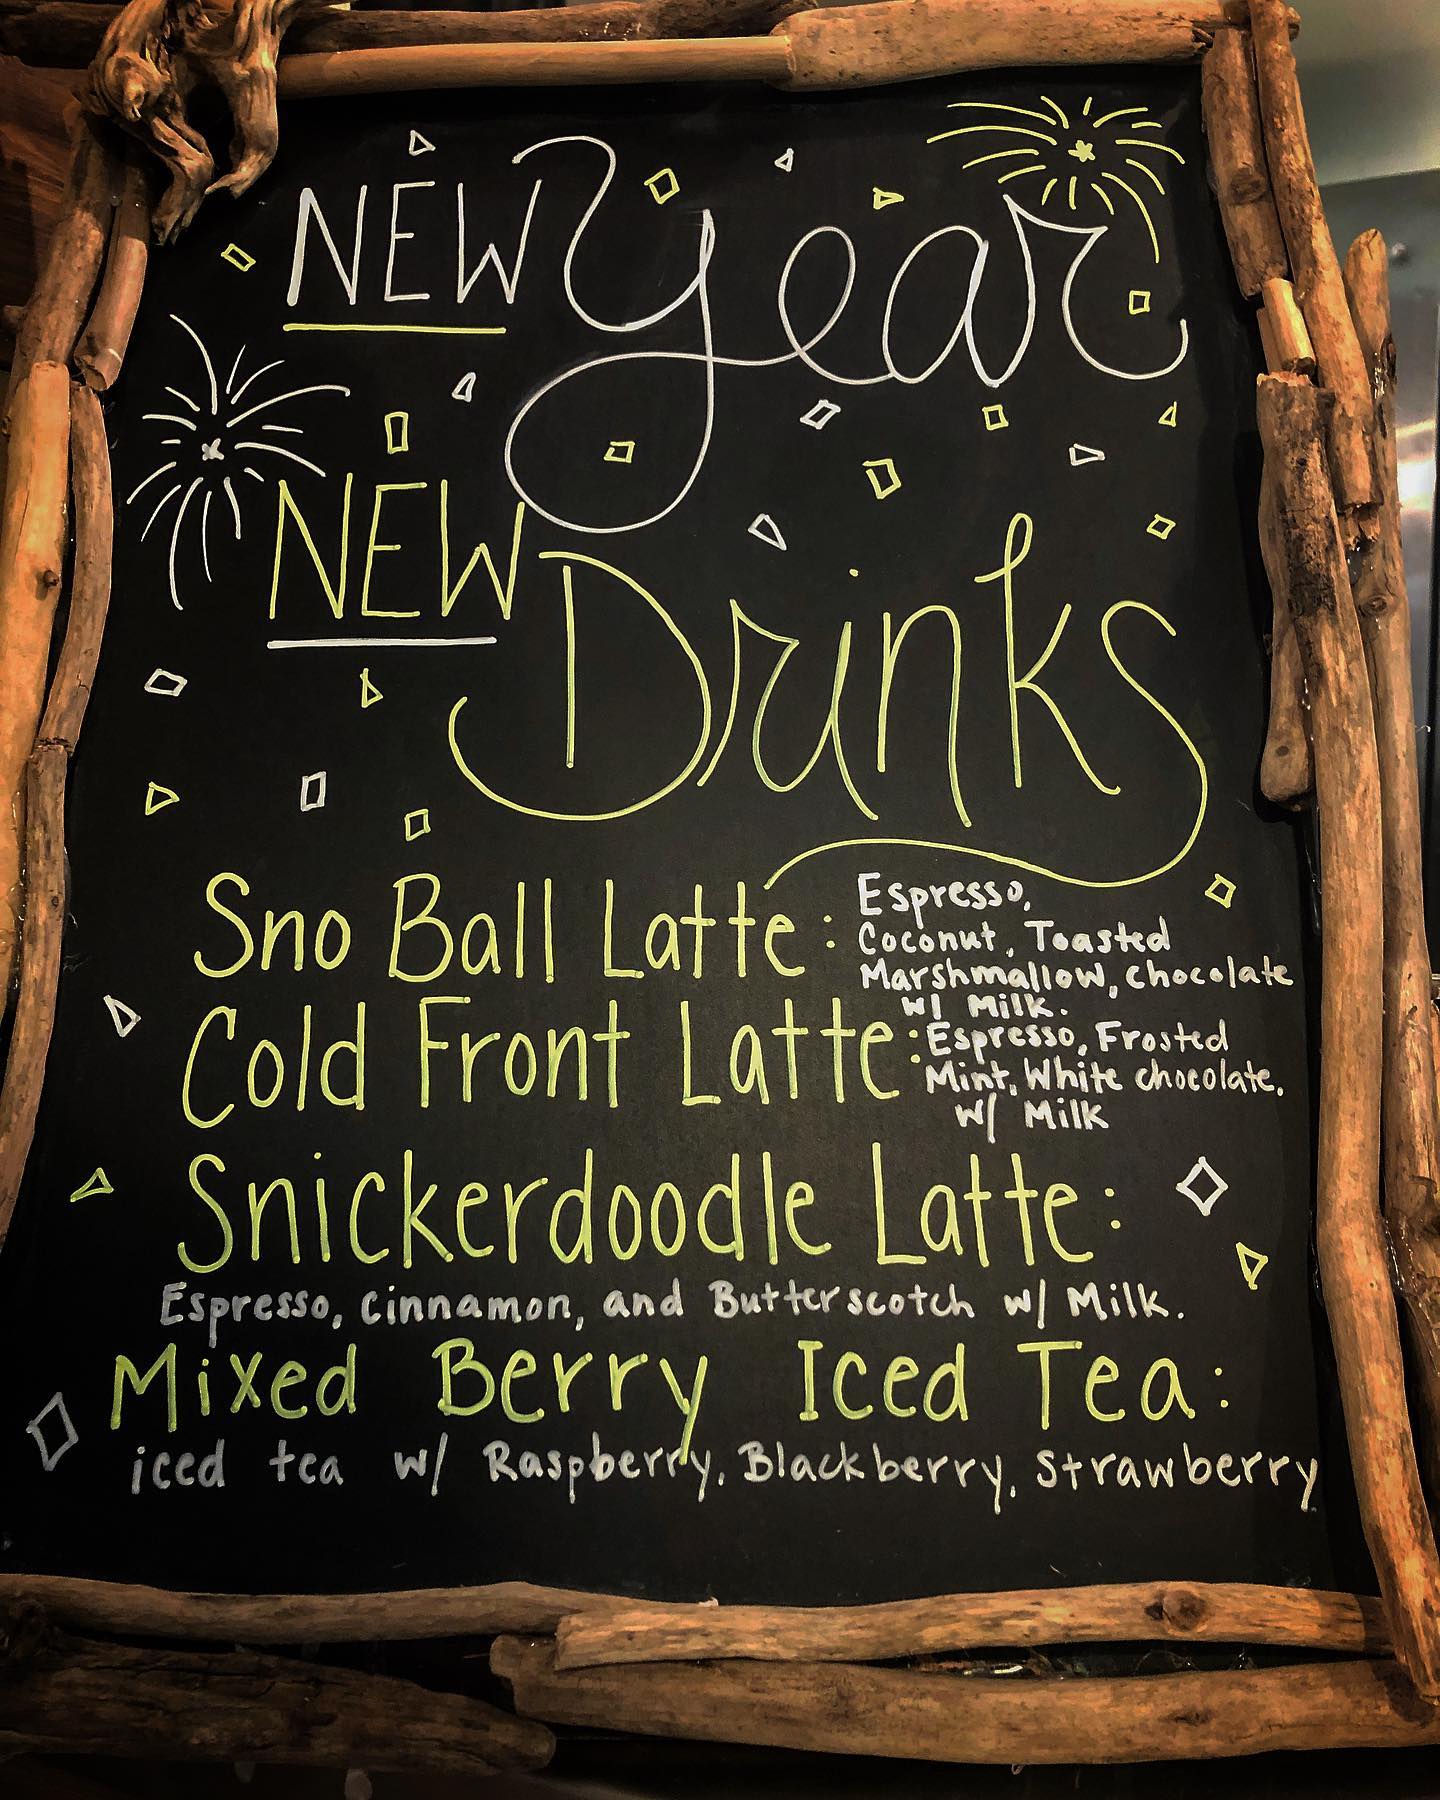 NEW Year
NEW Drinks
Sno Ball Latte: Espresso,
Coconut, Toasted
Marshmallow, chocolate
w/ Milk.
Cold Front Latte: Espresso, Frosted
Mint, White chocolate.
w/ Milk
Snickerdoodle Latte:
Espresso, cinnamon, and Butterscotch w/ Milk.
Mixed Berry Iced Tea:
iced tea w/ Raspberry, Blackberry, Strawberry